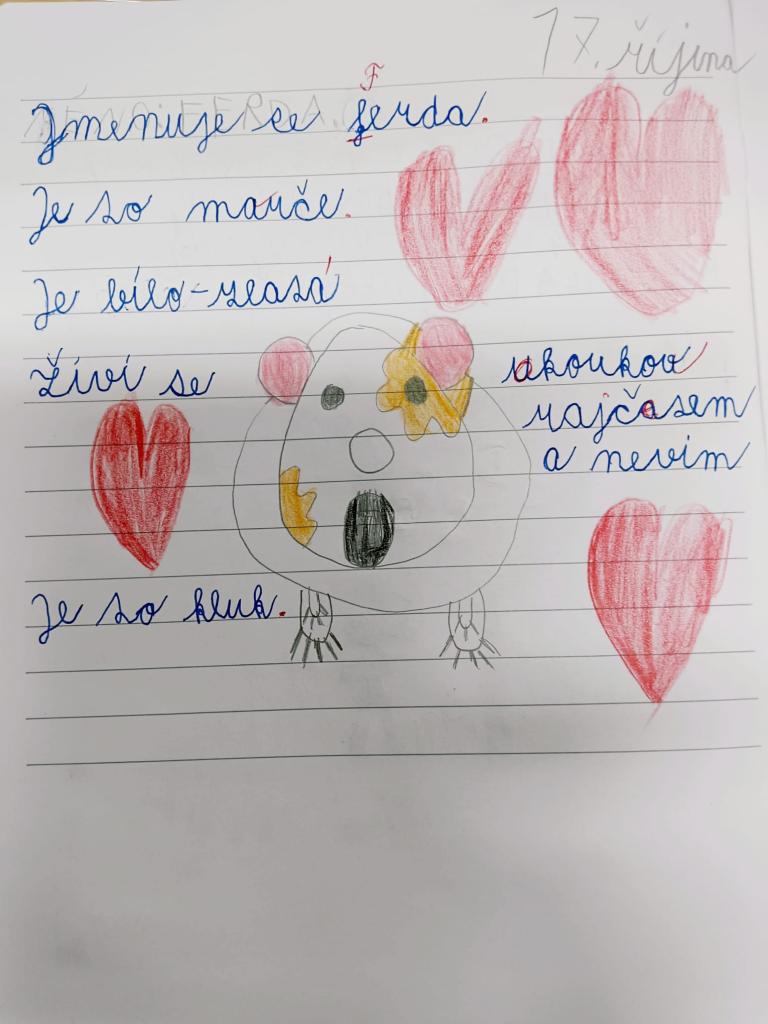 17. října
F
Jmenuje se ferda.
Je to marče.
Je bílo-zlatá
Živí se
rajčatem
a nevim
Je to kluk.